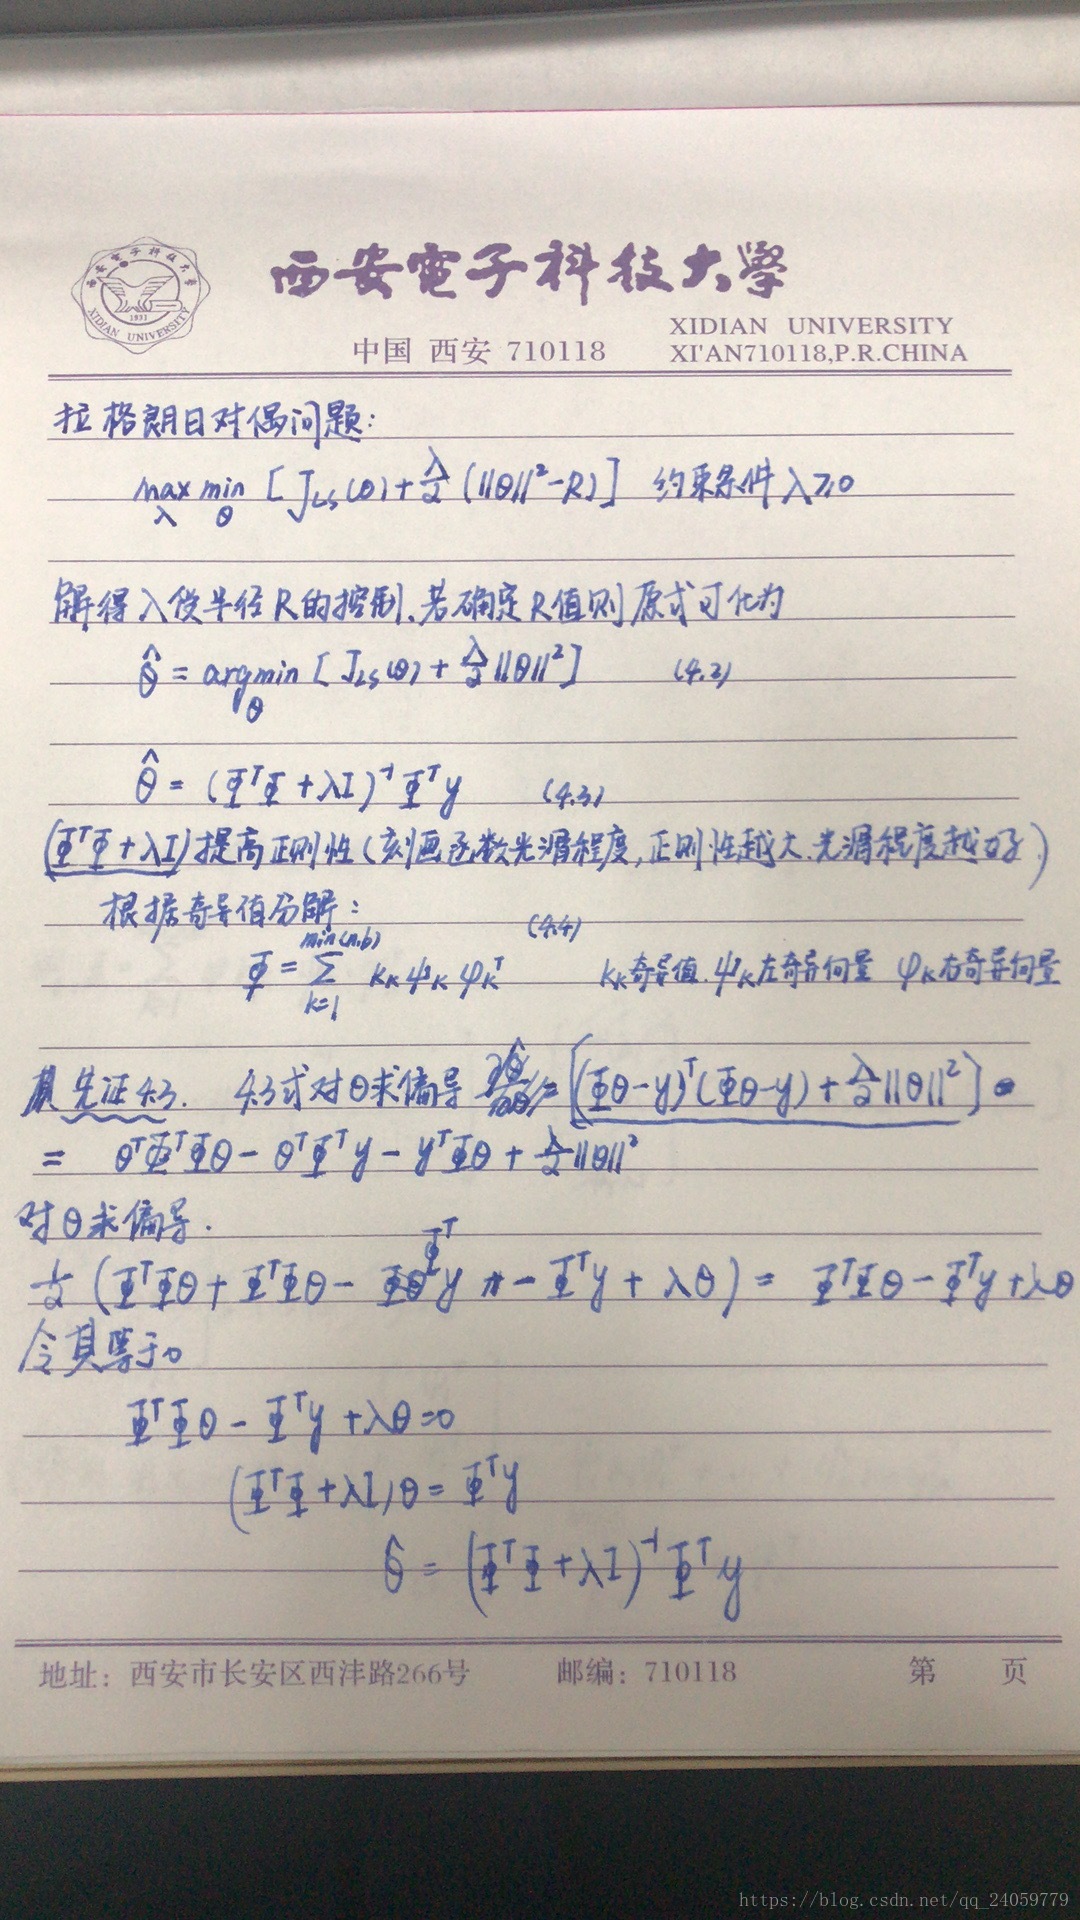 西安電子科技大學
XIDIAN UNIVERSITY
中国 西安 710118
XI'AN710118,P.R.CHINA
西安电子科技大学
XIDIAN UNIVERSITY
1931
拉格朗日对偶问题:
max_λ min_θ [J_LS(θ) + λ/2 (||θ||² - R)] 约束条件 λ≥0
解得λ受半径R的控制.若确定R值则原式可化为
θ̂ = argmin_θ [J_LS(θ) + λ/2 ||θ||²] (4.2)
θ̂ = (Φ^TΦ + λI)^-1 Φ^T y (4.3)
(Φ^TΦ + λI) 提高正则性(刻画函数光滑程度,正则性越大.光滑程度越好.)
根据奇异值分解: (4.4)
Φ = Σ_{k=1}^{min(n,b)} k_k ψ_k φ_k^T k_k奇异值.ψ_k左奇异向量 φ_k右奇异向量
先证4.3. 4.3式对θ求偏导 [(Φθ-y)^T(Φθ-y) + λ/2 ||θ||²]
= θ^TΦ^TΦθ - θ^TΦ^T y - y^TΦθ + λ/2 ||θ||²
对θ求偏导.
1/2 (Φ^TΦθ + Φ^TΦθ - Φ^T y - Φ^T y + λθ) = Φ^TΦθ - Φ^T y + λθ
令其等于0
Φ^TΦθ - Φ^T y + λθ = 0
(Φ^TΦ + λI)θ = Φ^T y
θ̂ = (Φ^TΦ + λI)^-1 Φ^T y
地址: 西安市长安区西沣路266号 邮编: 710118 第 页
https://blog.csdn.net/qq_24059779